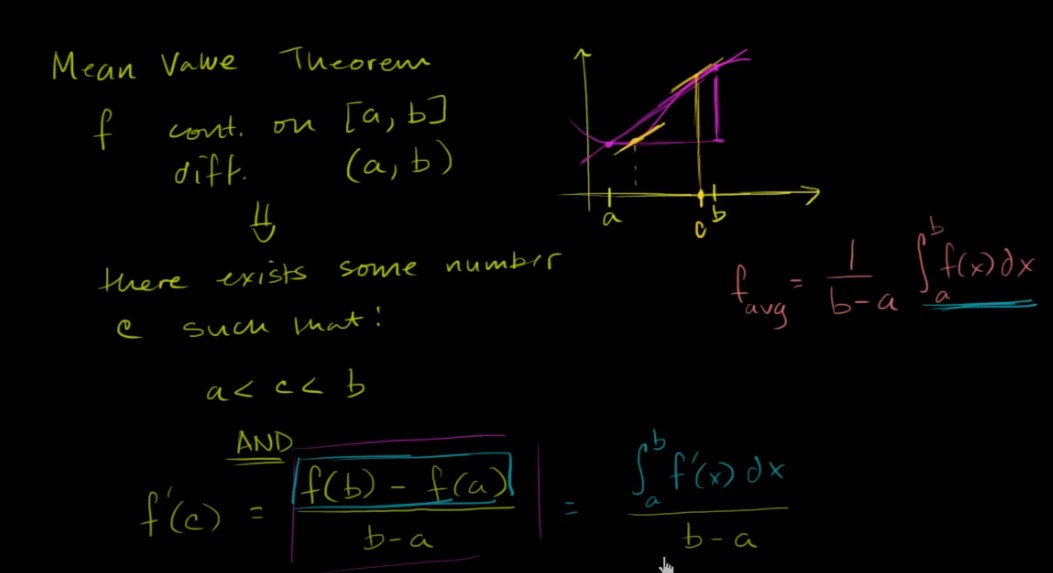 Mean Value Theorem
f cont. on [a, b]
diff. (a, b)
⇓
there exists some number
c such that:
a < c < b
AND
f'(c) = (f(b) - f(a))/(b-a) = (∫_a^b f'(x) dx)/(b-a)
a c b
f_avg = 1/(b-a) ∫_a^b f(x) dx